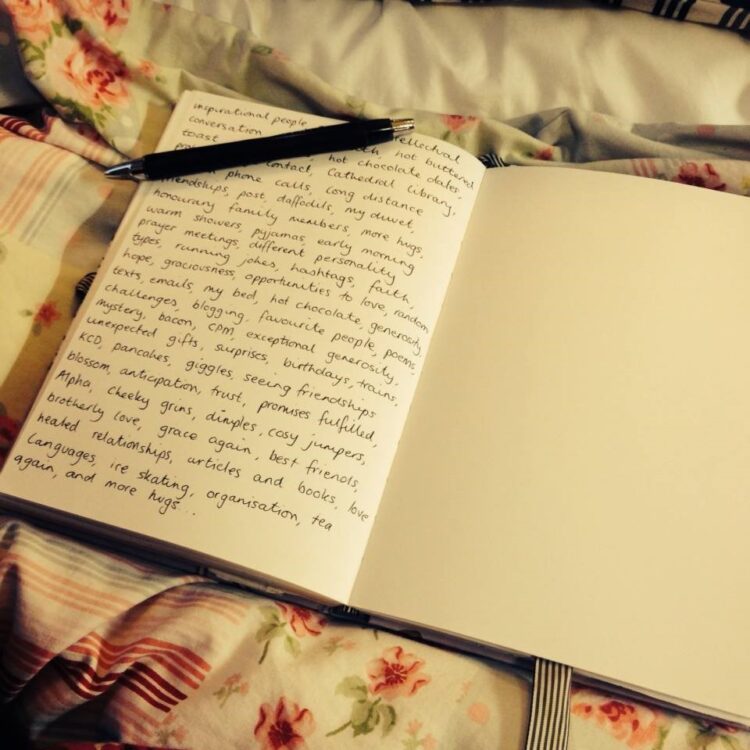 inspirational people
conversation
toast hot buttered
contact, hot chocolate dates,
phone calls, Cathedral Library,
friendships, post, long distance
honourary daffodils, my duvet,
warm family members, more hugs,
showers, pyjamas, early morning
prayer meetings, different personality
types, running jokes, hashtags, faith,
hope, graciousness, opportunities to love, random
texts, emails, my bed, hot chocolate, generosity,
challenges, blogging, favourite people, poems,
mystery, bacon, CPM, exceptional generosity,
unexpected gifts, surprises, birthdays, trains,
KCD, pancakes, giggles, seeing friendships
blossom, anticpation, trust, promises fulfilled,
Alpha, cheeky grins, dimples, cosy jumpers,
brotherly love, grace again, best friends,
healed relationships, articles and books, love
languages, ice skating, organisation, tea
again, and more hugs...